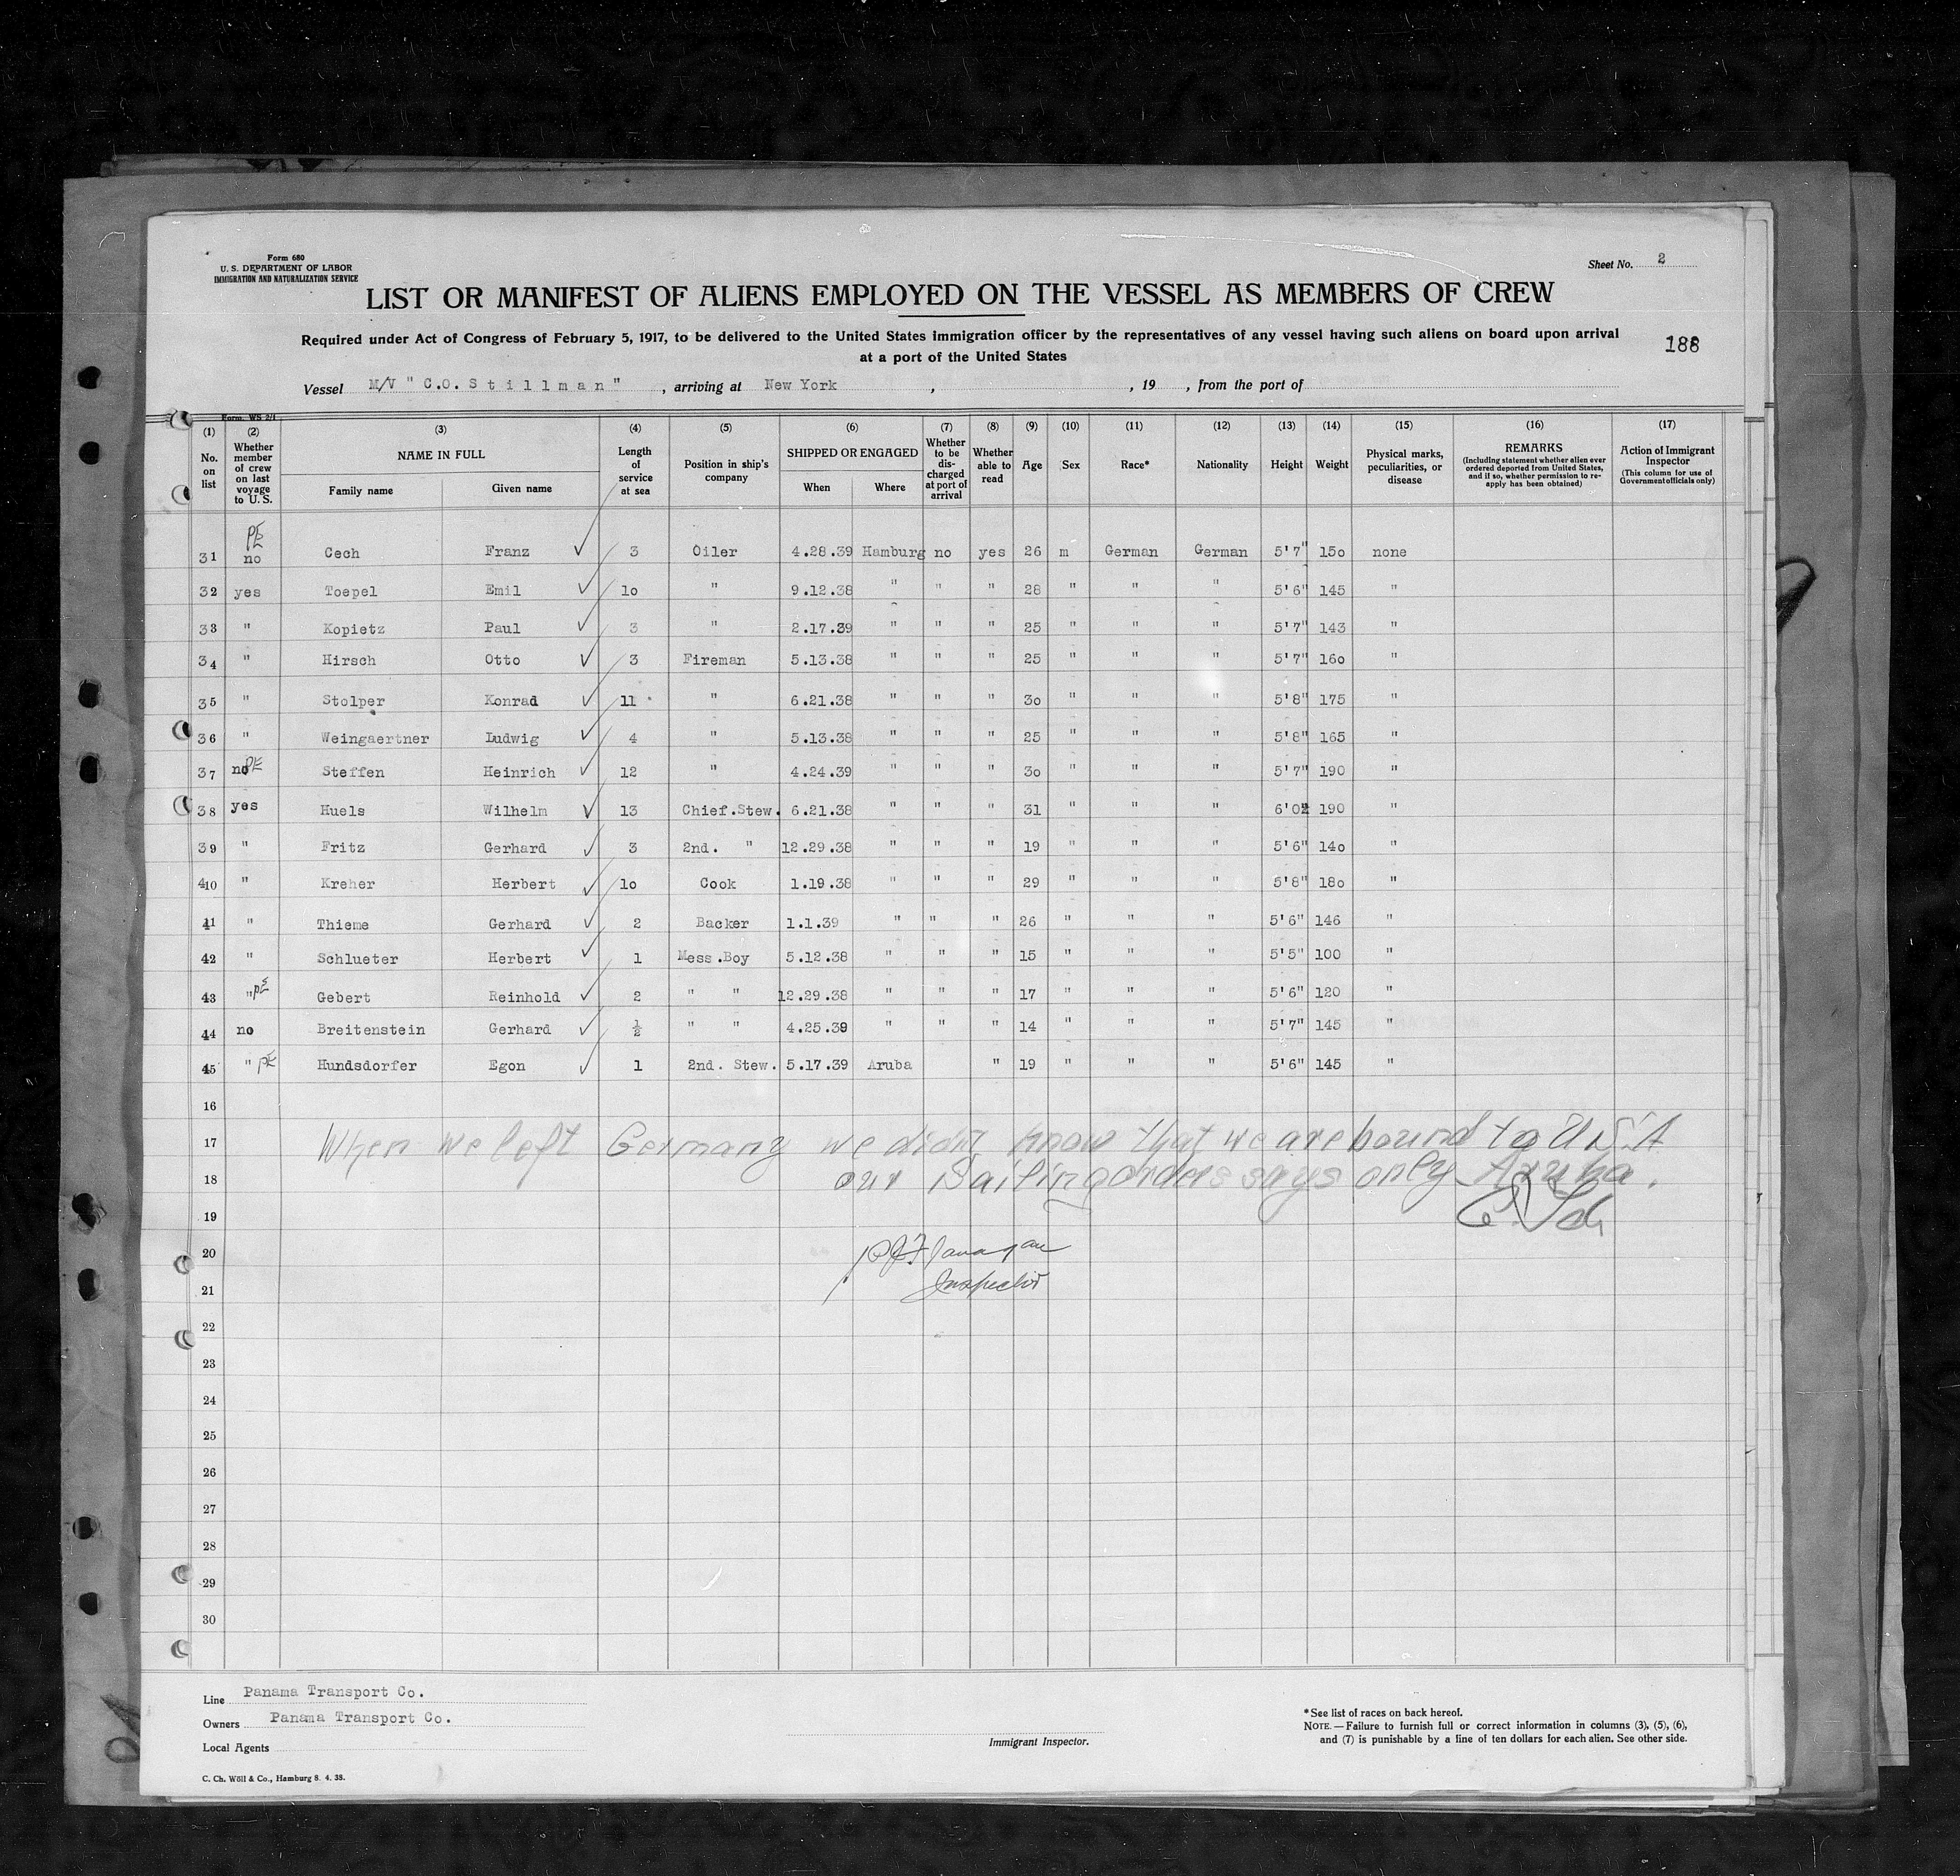 Form 680
U. S. DEPARTMENT OF LABOR
IMMIGRATION AND NATURALIZATION SERVICE
Sheet No. 2
LIST OR MANIFEST OF ALIENS EMPLOYED ON THE VESSEL AS MEMBERS OF CREW
Required under Act of Congress of February 5, 1917, to be delivered to the United States immigration officer by the representatives of any vessel having such aliens on board upon arrival
at a port of the United States
188
Vessel M/V " C.O. S t i l l m a n " , arriving at New York , , 19 , from the port of
Form. WS 2/1
(1) No. on list (2) Whether member of crew on last voyage to U. S. (3) NAME IN FULL Family name Given name (4) Length of service at sea (5) Position in ship's company (6) SHIPPED OR ENGAGED When Where (7) Whether to be discharged at port of arrival (8) Whether able to read (9) Age (10) Sex (11) Race* (12) Nationality (13) Height (14) Weight (15) Physical marks, peculiarities, or disease (16) REMARKS (Including statement whether alien ever ordered deported from United States, and if so, whether permission to reapply has been obtained) (17) Action of Immigrant Inspector (This column for use of Government officials only)
PE
31 no Cech Franz ✓ 3 Oiler 4.28.39 Hamburg no yes 26 m German German 5'7" 15o none
32 yes Toepel Emil ✓ 1o " 9.12.38 " " " 28 " " " 5'6" 145 "
33 " Kopietz Paul ✓ 3 " 2.17.39 " " " 25 " " " 5'7" 143 "
34 " Hirsch Otto ✓ 3 Fireman 5.13.38 " " " 25 " " " 5'7" 16o "
35 " Stolper Konrad ✓ 11 " 6.21.38 " " " 3o " " " 5'8" 175 "
36 " Weingaertner Ludwig ✓ 4 " 5.13.38 " " " 25 " " " 5'8" 165 "
37 no PE Steffen Heinrich ✓ 12 " 4.24.39 " " " 3o " " " 5'7" 190 "
38 yes Huels Wilhelm ✓ 13 Chief.Stew. 6.21.38 " " " 31 " " " 6'0" 190 "
39 " Fritz Gerhard ✓ 3 2nd. " 12.29.38 " " " 19 " " " 5'6" 14o "
40 " Kreher Herbert ✓ 1o Cook 1.19.38 " " " 29 " " " 5'8" 18o "
41 " Thieme Gerhard ✓ 2 Backer 1.1.39 " " " 26 " " " 5'6" 146 "
42 " Schlueter Herbert ✓ 1 Mess.Boy 5.12.38 " " " 15 " " " 5'5" 100 "
43 " PE Gebert Reinhold ✓ 2 " " 12.29.38 " " " 17 " " " 5'6" 120 "
44 no Breitenstein Gerhard ✓ ½ " " 4.25.39 " " " 14 " " " 5'7" 145 "
45 " PE Hundsdorfer Egon ✓ 1 2nd. Stew. 5.17.39 Aruba " 19 " " " 5'6" 145 "
16
17 When we left Germany we didnt know that we are bound to U.S.A
18 our Sailing orders says only Aruba.
19
20
21 Inspector
22
23
24
25
26
27
28
29
30
Line Panama Transport Co.
Owners Panama Transport Co.
Local Agents
Immigrant Inspector.
*See list of races on back hereof.
NOTE.—Failure to furnish full or correct information in columns (3), (5), (6),
and (7) is punishable by a fine of ten dollars for each alien. See other side.
C. Ch. Wöll & Co., Hamburg 8. 4. 38.